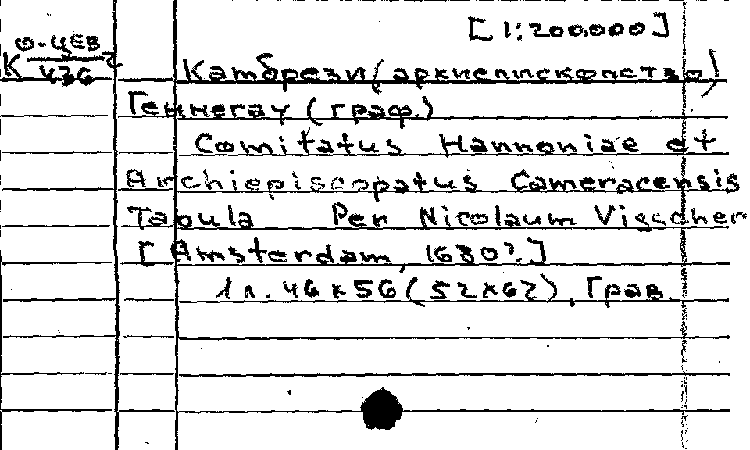 [1:200000]
К О-ЦЕВ/436
Камбрези (архиепископство)
Геннегау (граф.)
Comitatus Hannoniae et
Archiepiscopatus Cameracensis
Tabula Per Nicolaum Visscher
[Amsterdam, 1680?]
1 л. 46 x 56 (52x62), Грав.